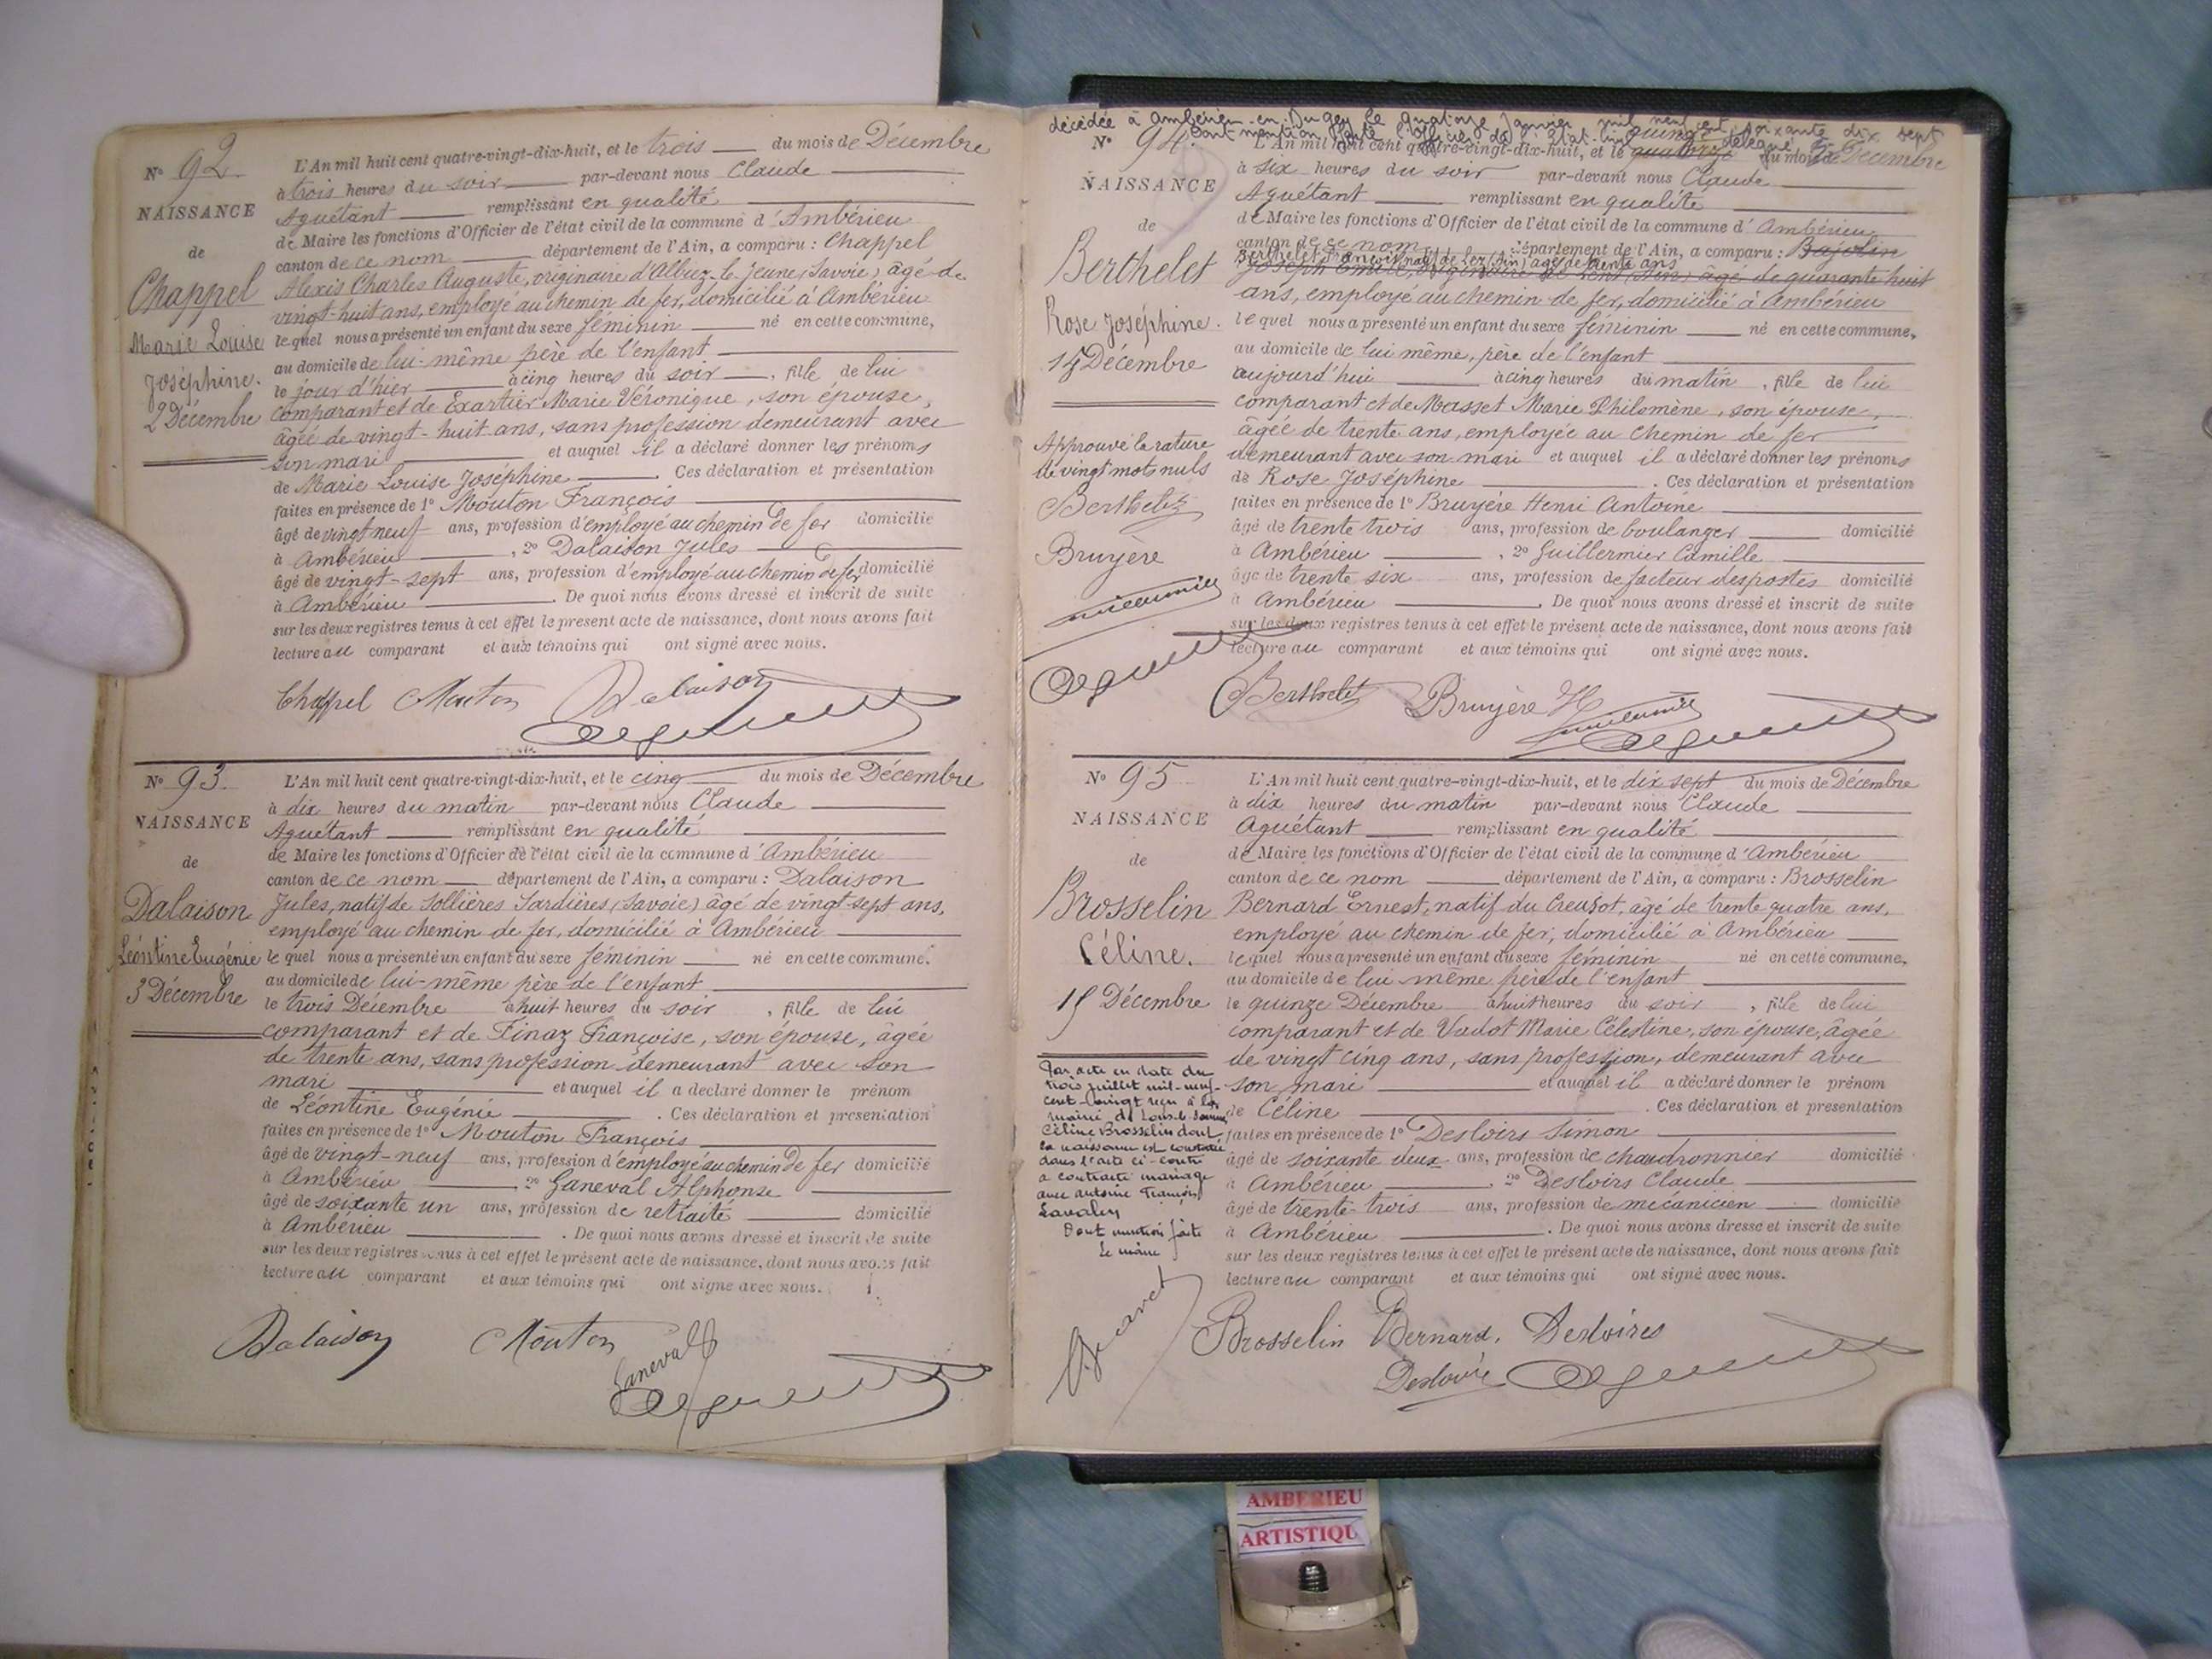 N° 92
NAISSANCE
de
Chappel
Marie Louise
Joséphine.
2 Décembre
L'An mil huit cent quatre-vingt-dix-huit, et le trois du mois de Décembre
à trois heures du soir par-devant nous Claude
Aguétant remplissant en qualité
de Maire les fonctions d'Officier de l'état civil de la commune d'Ambérieu
canton de ce nom département de l'Ain, a comparu : Chappel
Alexis Charles Auguste, originaire d'Albiez-le-jeune (Savoie) âgé de
vingt-huit ans, employé au chemin de fer, domicilié à Ambérieu
lequel nous a présenté un enfant du sexe féminin né en cette commune,
au domicile de lui-même père de l'enfant
le jour d'hier à cinq heures du soir, fille de lui
comparant et de Exartier Marie Véronique, son épouse,
âgée de vingt-huit ans, sans profession demeurant avec
son mari et auquel il a déclaré donner les prénoms
de Marie Louise Joséphine. Ces déclaration et présentation
faites en présence de 1° Mouton François
âgé de vingt neuf ans, profession d'employé au chemin de fer domicilié
à Ambérieu, 2° Dalaison Jules
âgé de vingt-sept ans, profession d'employé au chemin de fer domicilié
à Ambérieu. De quoi nous avons dressé et inscrit de suite
sur les deux registres tenus à cet effet le présent acte de naissance, dont nous avons fait
lecture au comparant et aux témoins qui ont signé avec nous.
Chappel Mouton Dalaison
N° 93
NAISSANCE
de
Dalaison
Léontine Eugénie
3 Décembre
L'An mil huit cent quatre-vingt-dix-huit, et le cinq du mois de Décembre
à dix heures du matin par-devant nous Claude
Aguétant remplissant en qualité
de Maire les fonctions d'Officier de l'état civil de la commune d'Ambérieu
canton de ce nom département de l'Ain, a comparu : Dalaison
Jules, natif de Sollières Sardières (Savoie) âgé de vingt-sept ans,
employé au chemin de fer, domicilié à Ambérieu
lequel nous a présenté un enfant du sexe féminin né en cette commune,
au domicile de lui-même père de l'enfant
le trois Décembre à huit heures du soir, fille de lui
comparant et de Finaz Françoise, son épouse, âgée
de trente ans, sans profession demeurant avec son
mari et auquel il a déclaré donner le prénom
de Léontine Eugénie. Ces déclaration et présentation
faites en présence de 1° Mouton François
âgé de vingt-neuf ans, profession d'employé au chemin de fer domicilié
à Ambérieu 2° Ganeval Alphonse
âgé de soixante un ans, profession de retraité domicilié
à Ambérieu. De quoi nous avons dressé et inscrit de suite
sur les deux registres tenus à cet effet le présent acte de naissance, dont nous avons fait
lecture au comparant et aux témoins qui ont signé avec nous.
Dalaison Mouton Ganeval
décédée à Ambérieu-en-Bugey le quatorze Janvier mil neuf cent soixante dix sept
Dont mention faite l'officier de l'état-civil délégué
N° 94.
NAISSANCE
de
Berthelet
Rose Joséphine.
15 Décembre
Approuvé la rature
de vingt mots nuls
Berthelet
Bruyère
L'An mil huit cent quatre-vingt-dix-huit, et le quatorze quinze du mois de Décembre
à six heures du soir par-devant nous Claude
Aguétant remplissant en qualité
de Maire les fonctions d'Officier de l'état civil de la commune d'Ambérieu
canton de ce nom département de l'Ain, a comparu : Bajolin
Berthelet François natif de Lez (Ain) âgé de trente ans
Joseph Emile, âgé de quarante huit
ans, employé au chemin de fer, domicilié à Ambérieu
lequel nous a présenté un enfant du sexe féminin né en cette commune,
au domicile de lui même, père de l'enfant
aujourd'hui à cinq heures du matin, fille de lui
comparant et de Masset Marie Philomène, son épouse,
âgée de trente ans, employée au chemin de fer
demeurant avec son mari et auquel il a déclaré donner les prénoms
de Rose Joséphine. Ces déclaration et présentation
faites en présence de 1° Bruyère Henri Antoine
âgé de trente trois ans, profession de boulanger domicilié
à Ambérieu, 2° Guillermier Camille
âgé de trente six ans, profession de facteur des postes domicilié
à Ambérieu. De quoi nous avons dressé et inscrit de suite
sur les deux registres tenus à cet effet le présent acte de naissance, dont nous avons fait
lecture au comparant et aux témoins qui ont signé avec nous.
Berthelet Bruyère H
N° 95
NAISSANCE
de
Brosselin
Céline.
15 Décembre
Par acte en date du
trois juillet mil-neuf-
cent-vingt reçu à la
mairie de Lons-le-Saunier
Céline Brosselin dont
la naissance est constatée
dans l'acte ci-contre
a contracté mariage
avec Antoine François
Lavalley
Dont mention faite
Le maire
L'An mil huit cent quatre-vingt-dix-huit, et le dix sept du mois de Décembre
à dix heures du matin par-devant nous Claude
Aguétant remplissant en qualité
de Maire les fonctions d'Officier de l'état civil de la commune d'Ambérieu
canton de ce nom département de l'Ain, a comparu : Brosselin
Bernard Ernest, natif du Creuzot, âgé de trente quatre ans,
employé au chemin de fer, domicilié à Ambérieu
lequel nous a présenté un enfant du sexe féminin né en cette commune,
au domicile de lui même père de l'enfant
le quinze Décembre à huit heures du soir, fille de lui
comparant et de Vadot Marie Célestine, son épouse, âgée
de vingt cinq ans, sans profession, demeurant avec
son mari et auquel il a déclaré donner le prénom
de Céline. Ces déclaration et présentation
faites en présence de 1° Desloirs Simon
âgé de soixante deux ans, profession de chaudronnier domicilié
à Ambérieu, 2° Desloirs Claude
âgé de trente-trois ans, profession de mécanicien domicilié
à Ambérieu. De quoi nous avons dressé et inscrit de suite
sur les deux registres tenus à cet effet le présent acte de naissance, dont nous avons fait
lecture au comparant et aux témoins qui ont signé avec nous.
Brosselin Bernard, Desloires
Desloire
AMBERIEU
ARTISTIQU